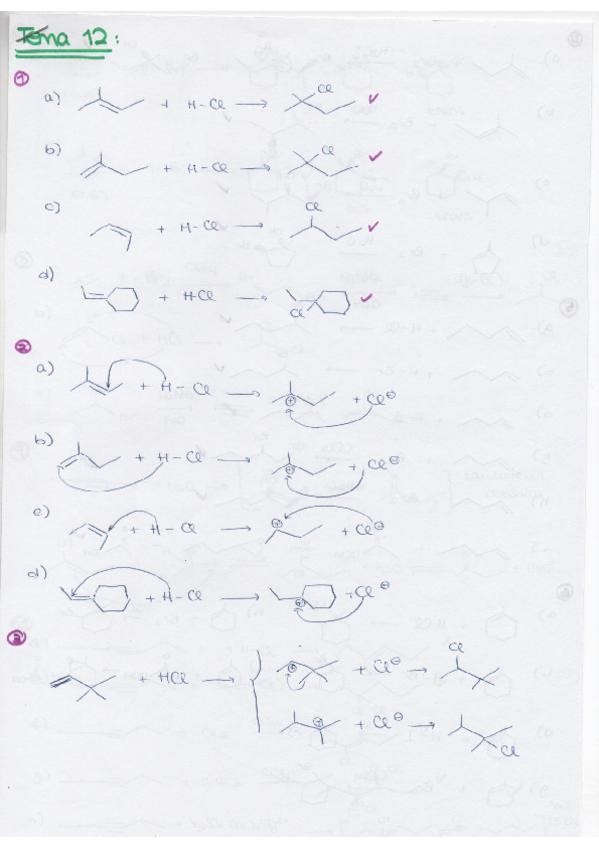 Tema 12:
1
a) + H-Cl → Cl ✓
b) + H-Cl → Cl ✓
c) + H-Cl → Cl ✓
d) + H-Cl → Cl ✓
2
a) + H-Cl → ⊕ + Cl⊖
b) + H-Cl → ⊕ + Cl⊖
c) + H-Cl → ⊕ + Cl⊖
d) + H-Cl → ⊕ + Cl⊖
+ HCl → ⊕ + Cl⊖ → Cl
⊕ + Cl⊖ → Cl